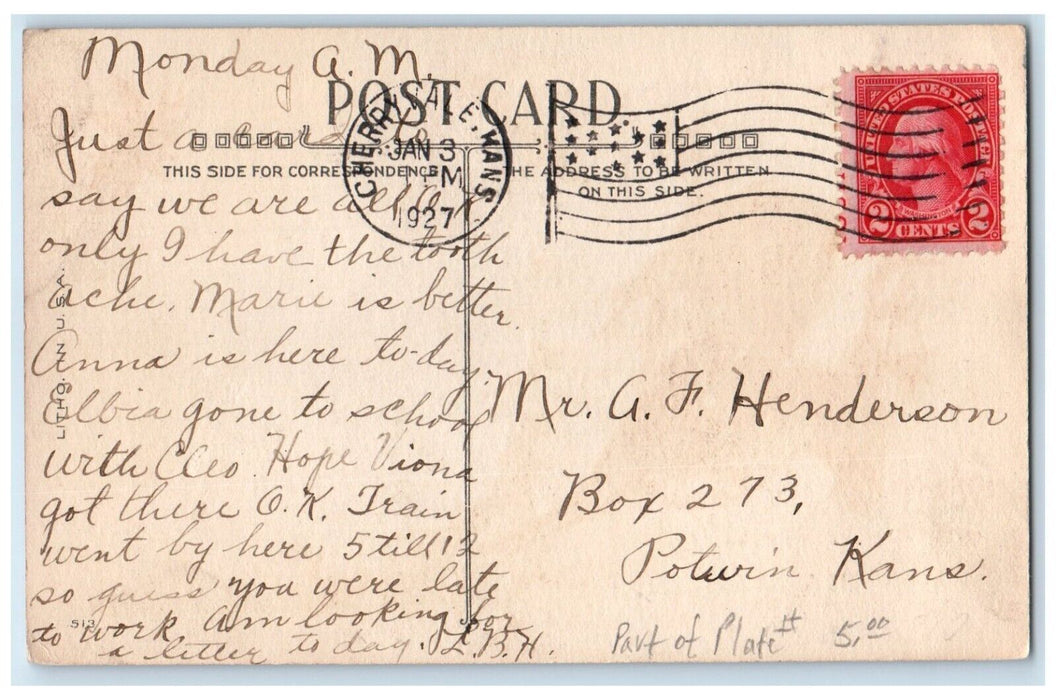 Monday A.M.
Just a card to
say we are all O.K.
only I have the tooth
ache. Marie is better.
Anna is here to-day.
Elbia gone to school
with Cleo. Hope Viona
got there O.K. Train
went by here 5 till 12
so guess you were late
to work am looking for
a letter to day. L.B.H.
POST CARD.
THIS SIDE FOR CORRESPONDENCE
THE ADDRESS TO BE WRITTEN
ON THIS SIDE.
CHERRYVALE, KANS.
JAN 3
M
1927
UNITED STATES POSTAGE
WASHINGTON
2 CENTS 2
Mr. A. F. Henderson
Box 273,
Potwin Kans.
LITHO. IN U.S.A.
513
Part of Plate #
5.00